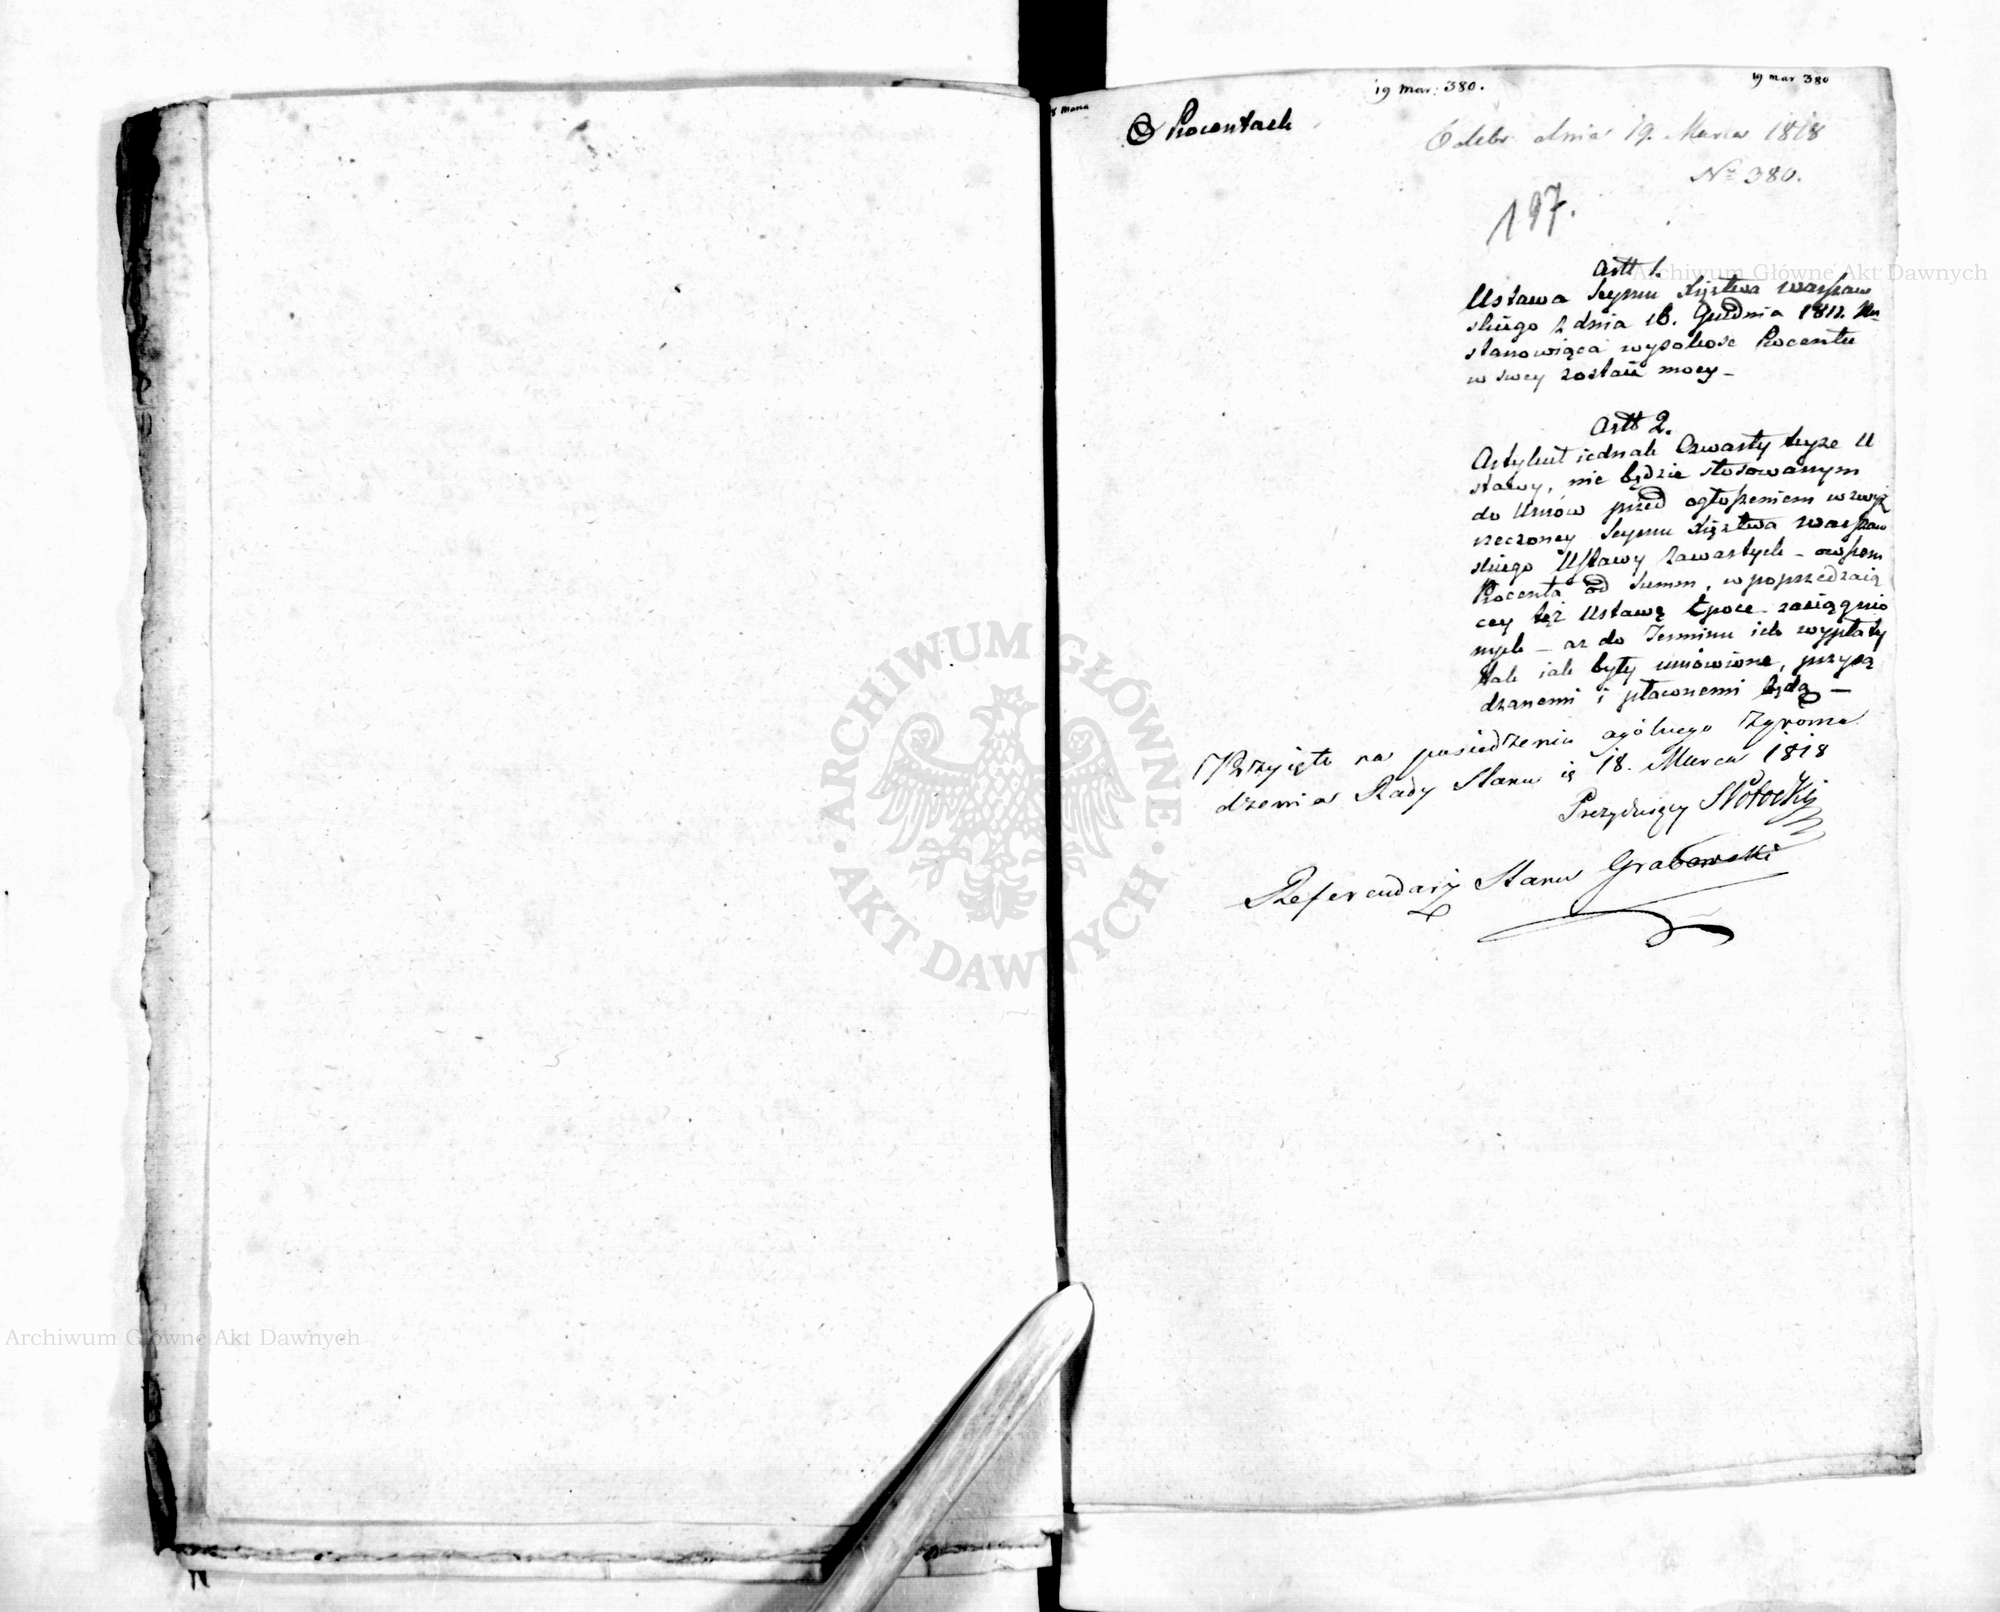 19 Mar: 380.
19 mar 380
8 Marca
O Procentach
Odebr. dnia 19. Marca 1818
Nr 380.
197.
Artt 1.
Ustawa Seymu Xięztwa Warszaw
skiego z dnia 16. Grudnia 1811.
stanowiąca wysokość Procentu
w swey zostaie mocy -
Artt 2.
Artykuł iednak Czwarty teyże U
stawy, nie będzie stosowanym
do Umów przed ogłoszeniem wzwyż
rzeczoney Seymu Xięztwa Warszaw
skiego Ustawy zawartych - owszem
Procenta od Summ, w poprzedzaią
cey też Ustawę Epoce zaciągnio
nych - aż do Terminu ich wypłaty
tak iak były umówione, przysą
dzanemi i płaconemi będą -
Przyięto na posiedzeniu ogólnego Zgroma
dzenia Rady Stanu 18. Marca 1818
Prezyduiący SPotocki
Referendarz Stanu Grabowski
Archiwum Główne Akt Dawnych
ARCHIWUM GŁÓWNE
AKT DAWNYCH
Archiwum Główne Akt Dawnych